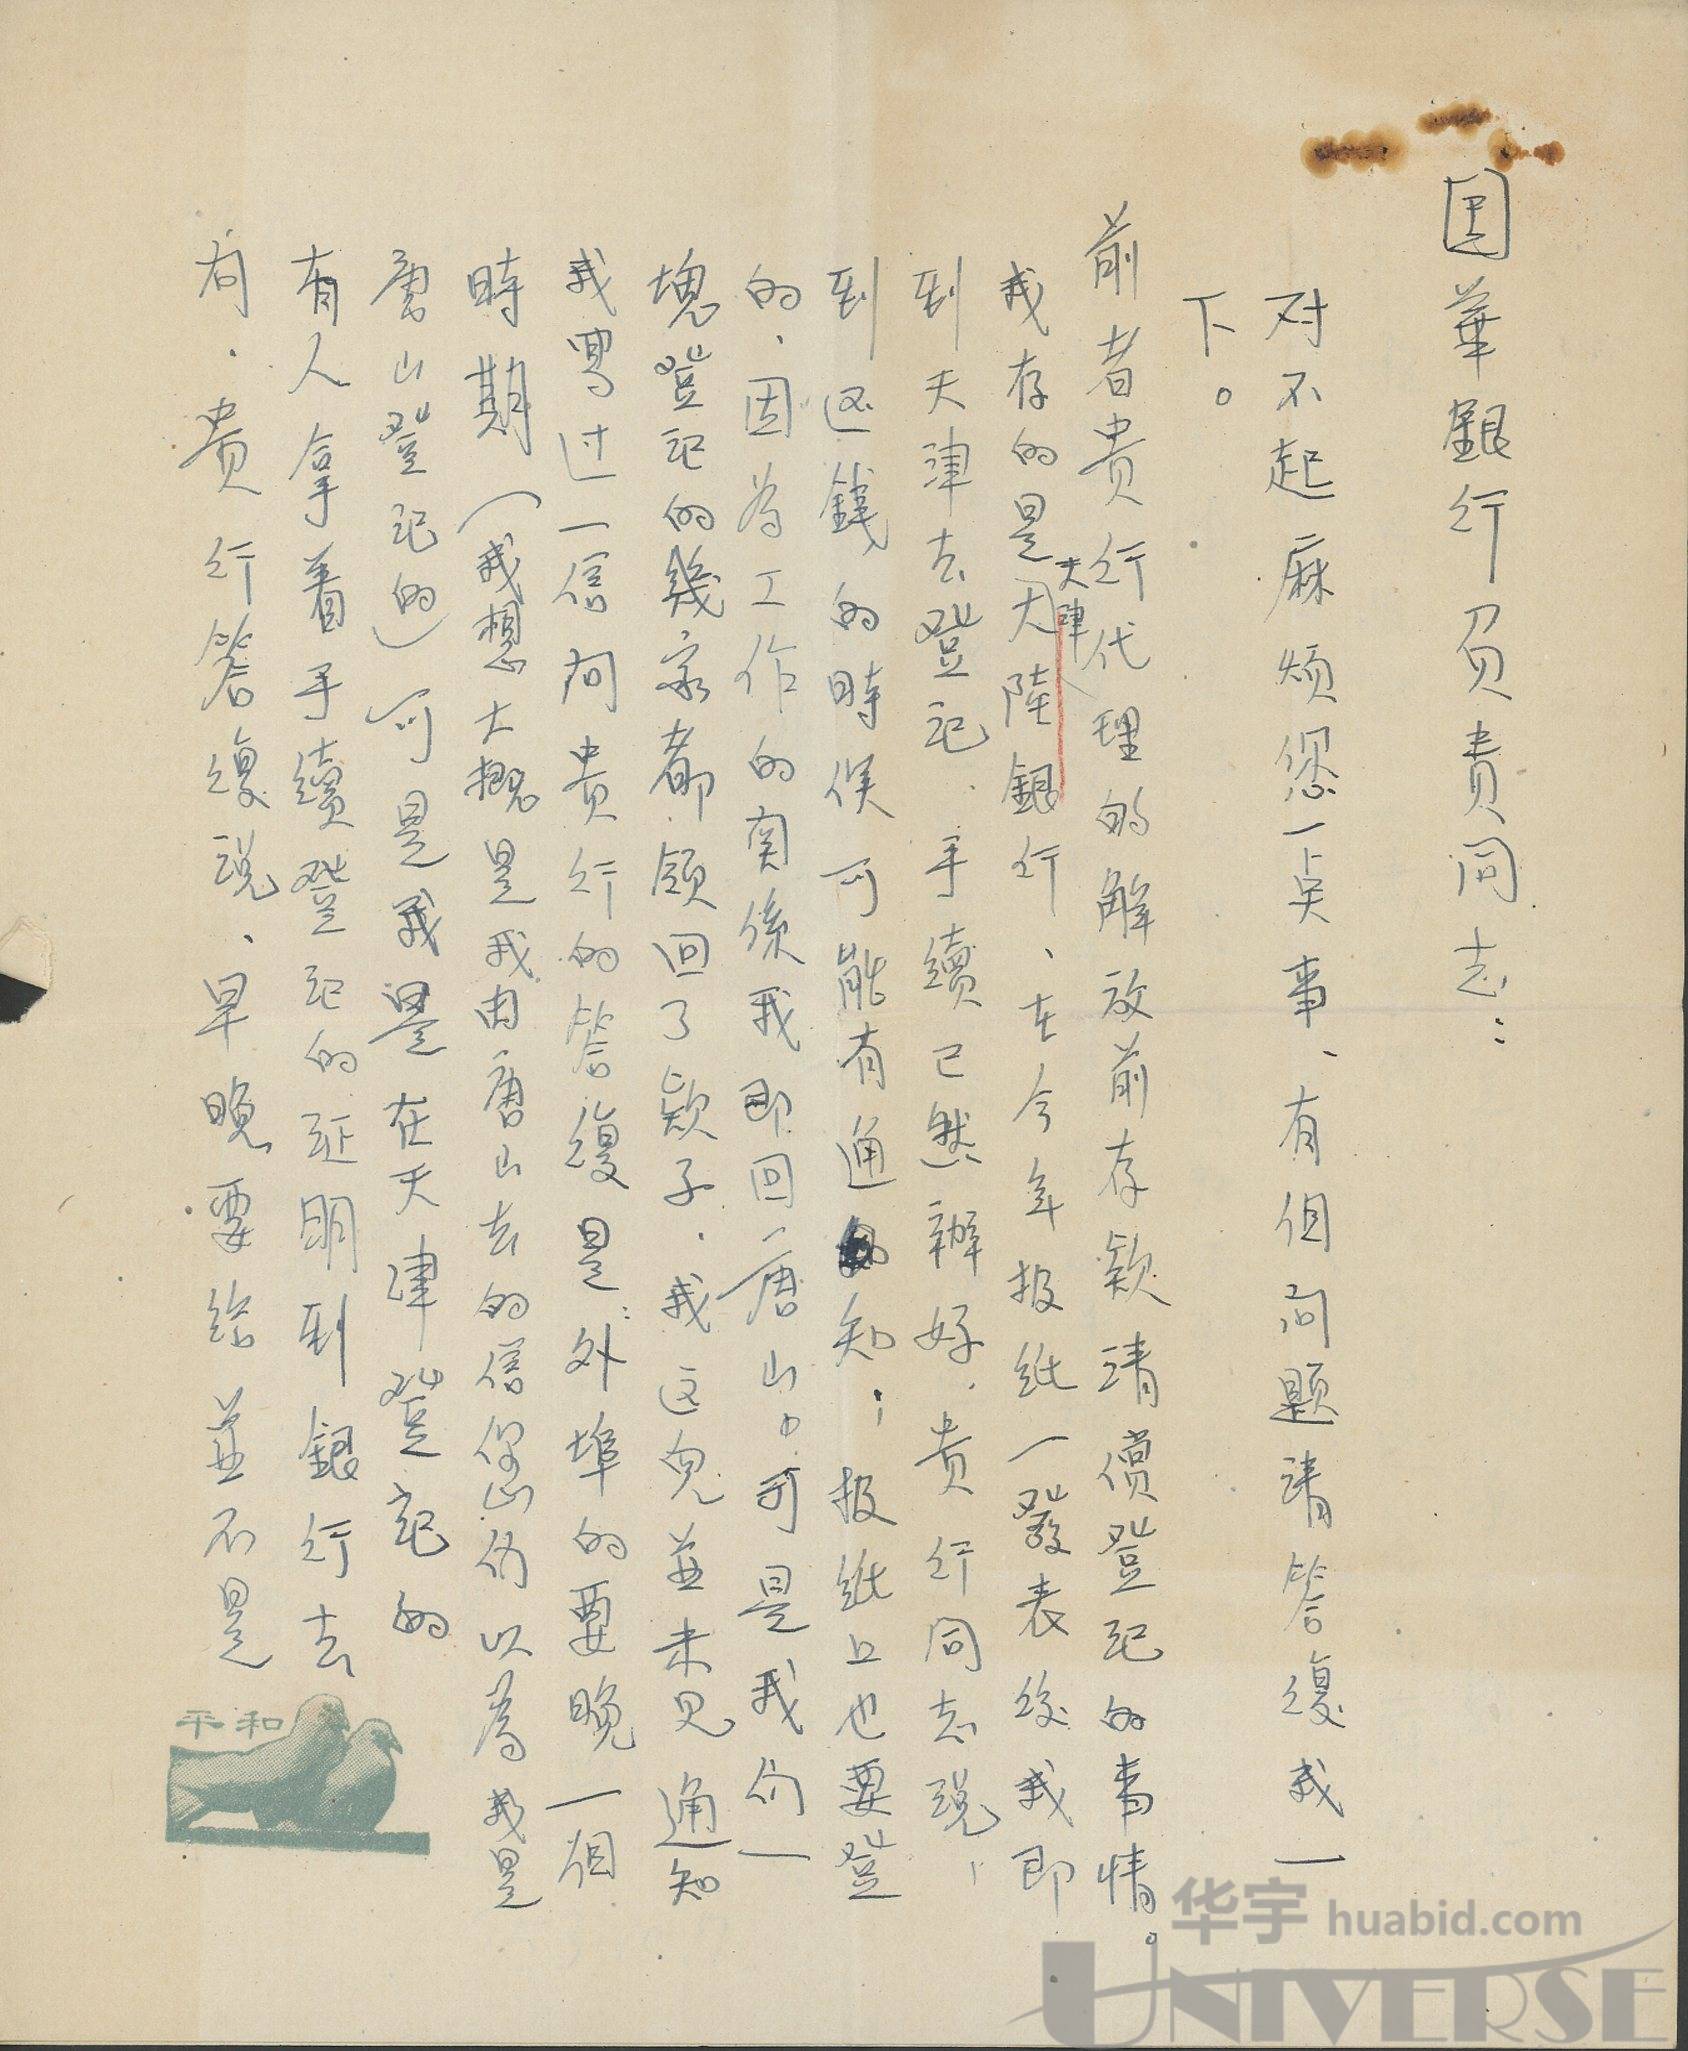 国華銀行負責同志：
对不起麻烦您一点事、有個问题請答復我一
下。
前者贵行代理的解放前存款清償登记的事情。
我存的是天津大陸銀行、在今年报纸一發表後我即
到天津去登记.手續已然辦好.贵行同志説、
到还錢的時候可能有通知；报纸上也要登
的、因為工作的関係我即回唐山。可是我们一
塊登记的幾家都領回了款子.我这兒並未见通知
我写过一信问贵行的答復是：外埠的要晚一個
時期（我想大概是我由唐山去的信你们仍以為我是
唐山登记的）可是我是在天津登記的
有人拿着手續登记的证明到銀行去
问.贵行答復説、早晚要给並不是
平和
华宇 huabid.com
UNIVERSE